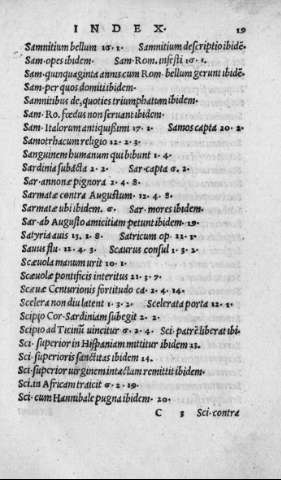 INDEX. 19
Samnitium bellum 16. 1. Samnitium descriptio ibidē.
Sam. opes ibidem. Sam. Rom. infesti 16. 1.
Sam. quinquaginta annis cum Rom. bellum gerunt ibidē.
Sam. per quos domiti ibidem.
Samnitibus de, quoties triumphatum ibidem.
Sam. Ro. fœdus non seruant ibidem.
Sam. Italorum antiquissimi 17. 2. Samos capta 20. 2.
Samothracum religio 12. 2. 3.
Sanguinem humanum qui bibunt 1. 4.
Sardinia subacta 2. 2. Sar. capta 6. 2.
Sar. annonæ pignora 2. 4. 8.
Sarmatæ contra Augustum. 12. 4. 8.
Sarmatæ ubi ibidem. 6. Sar. mores ibidem.
Sar. ab Augusto amicitiam petunt ibidem. 19.
Satyria auis 13. 2. 8. Satricum op. 11. 3.
Sauus flu. 12. 4. 3. Scaurus consul 1. 3. 2.
Scæuola manum urit 10. 1.
Scæuolæ pontificis interitus 21. 3. 7.
Scæuæ Centurionis fortitudo ca. 2. 4. 14.
Scelera non diu latent 1. 3. 2. Scelerata porta 12. 1.
Scipio Cor. Sardiniam subegit 2. 2.
Scipio ad Ticinū uincitur 6. 2. 4. Sci. patrē liberat ibi.
Sci. superior in Hispaniam mittitur ibidem 13.
Sci. superioris sanctitas ibidem 14.
Sci. superior uirginem intactam remittit ibidem.
Sci. in Africam traicit 6. 2. 19.
Sci. cum Hannibale pugna ibidem. 20.
C 3 Sci. contra